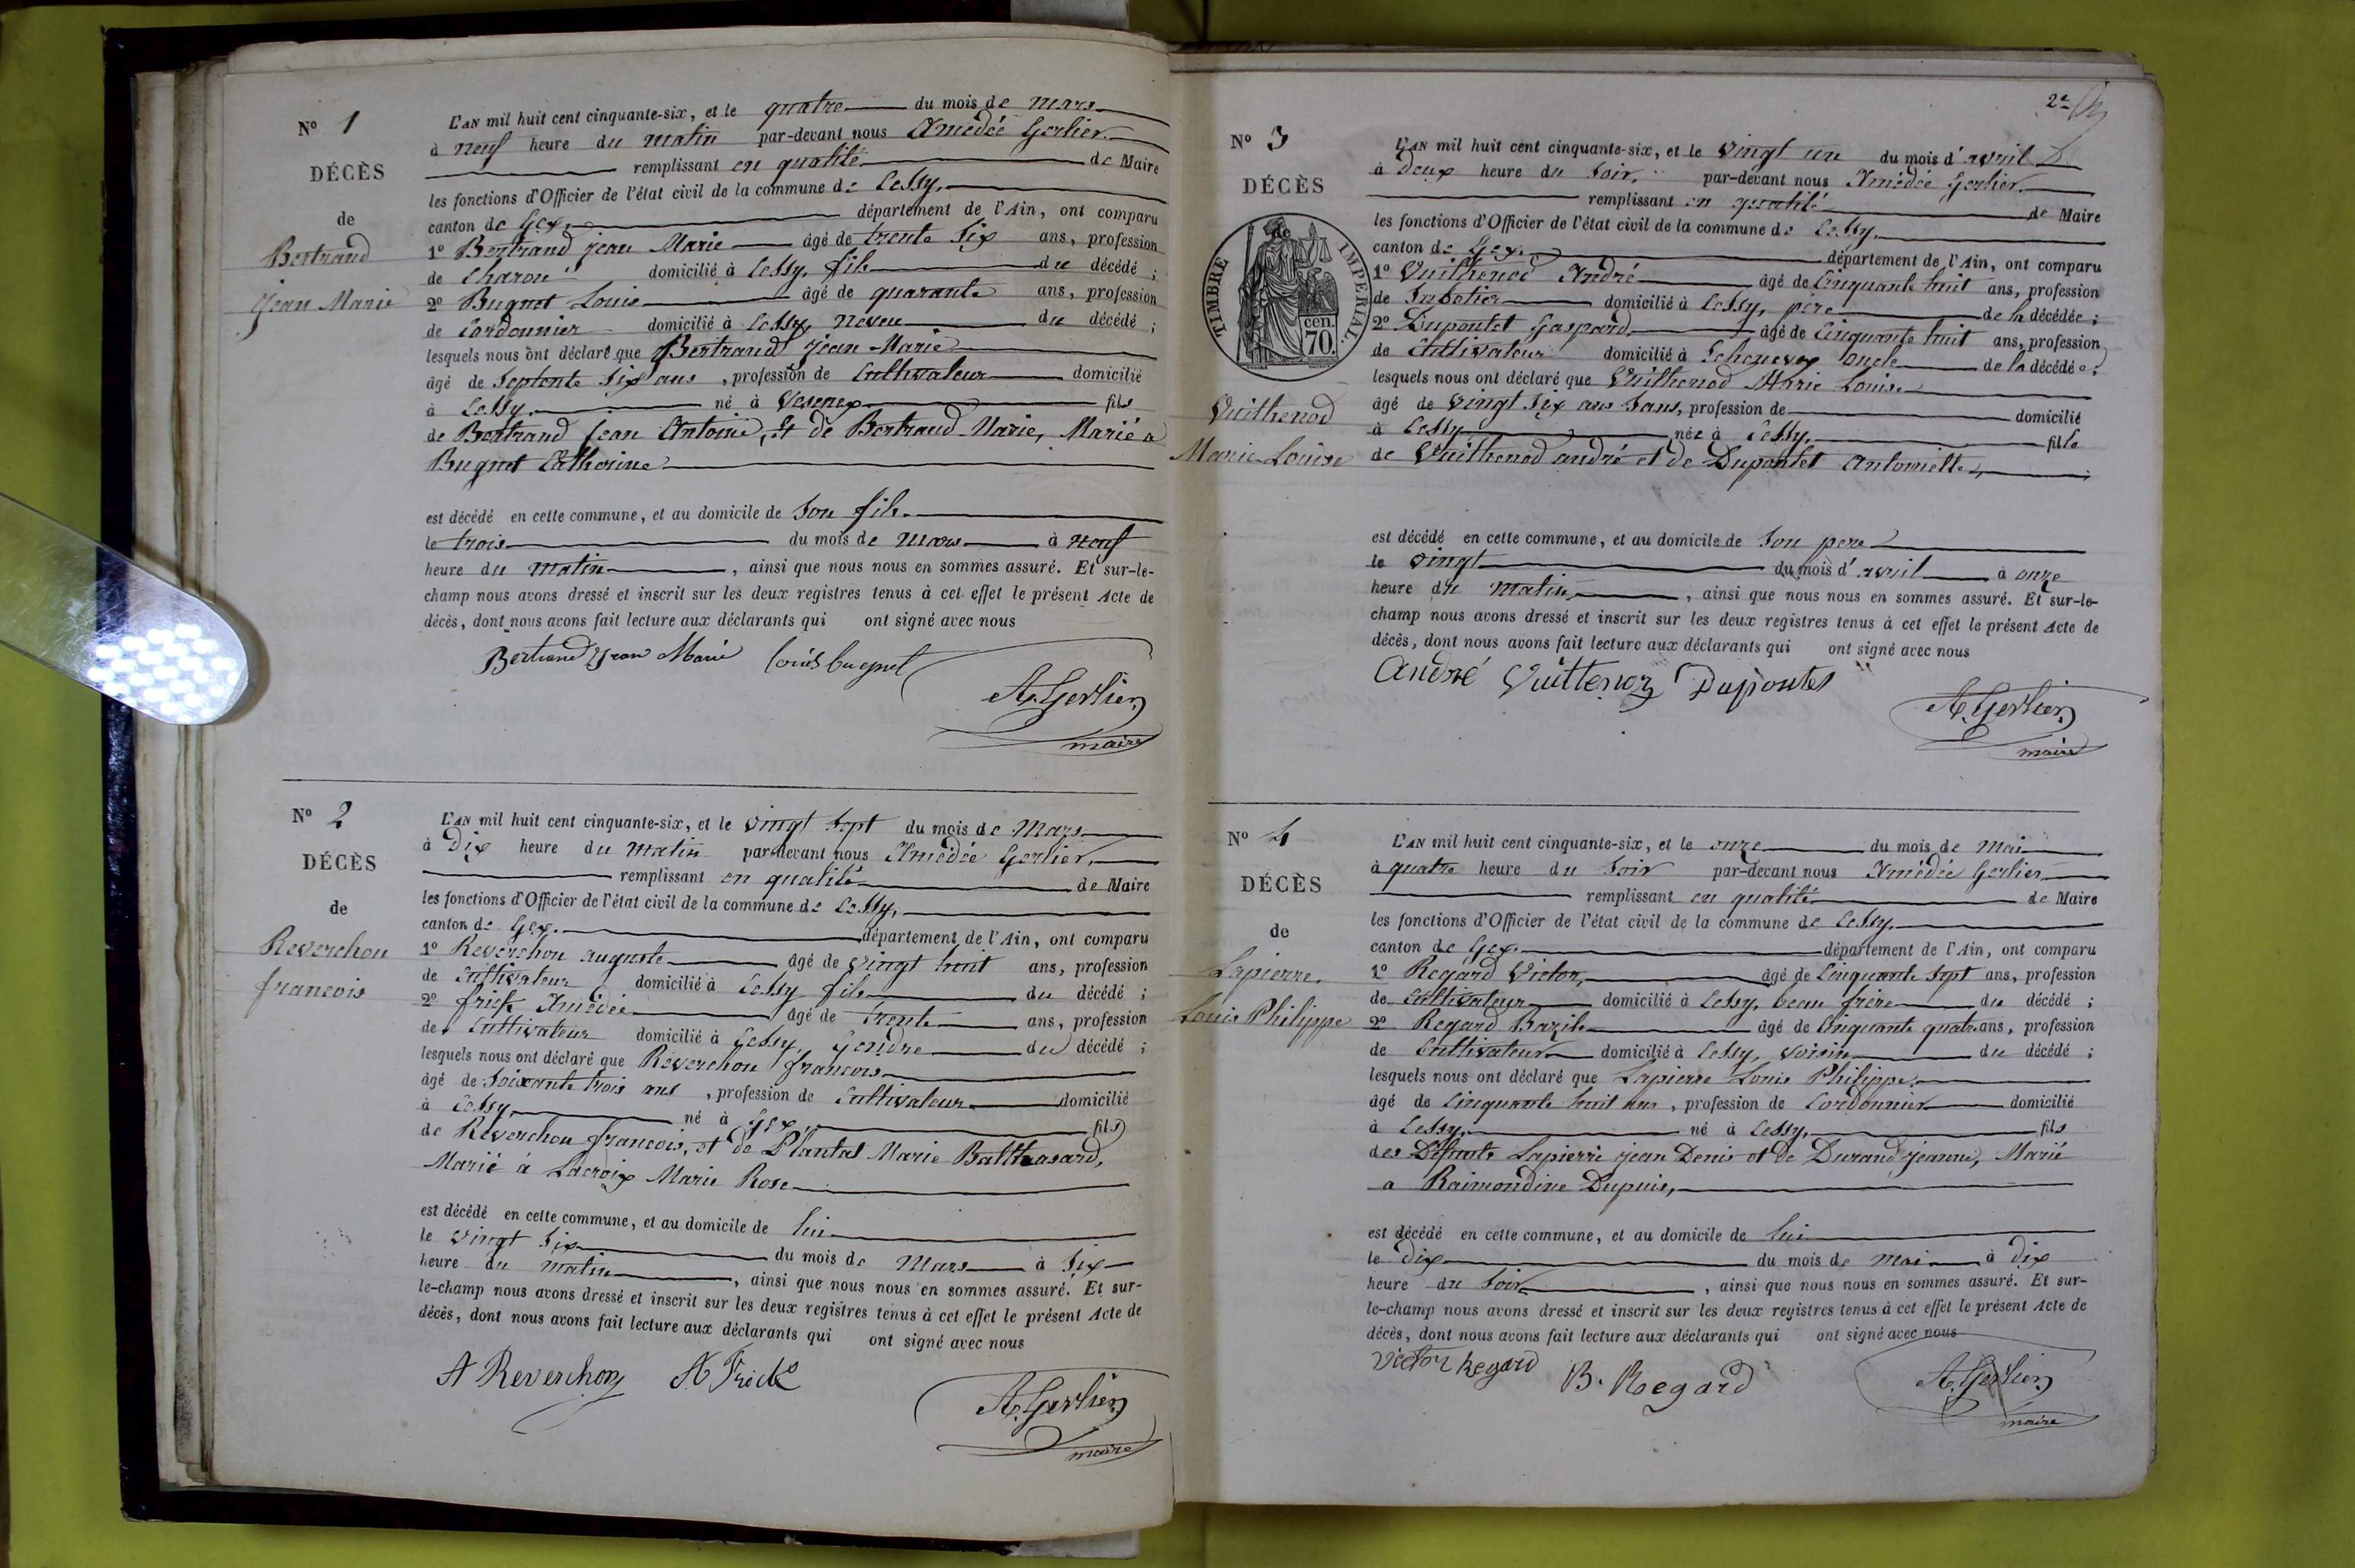 N° 1
DÉCÈS
de
Bertrand
Jean Marie
L'AN mil huit cent cinquante-six, et le quatre du mois de mars
à neuf heure du matin par-devant nous Amédée Gerlier
remplissant en qualité de Maire
les fonctions d'Officier de l'état civil de la commune de Cessy,
canton de Gex, département de l'Ain, ont comparu
1° Bertrand jean Marie âgé de trente six ans, profession
de Charon domicilié à Cessy, fils du décédé ;
2° Bugnet Louis âgé de quarante ans, profession
de Cordonnier domicilié à Cessy, neveu du décédé ;
lesquels nous ont déclaré que Bertrand jean Marie
âgé de Septente Six ans , profession de Cultivateur domicilié
à Cessy. né à Vesenex fils
de Bertrand Jean Antoine, Et de Bertrand Marie, Marié a
Bugnet Catherine
est décédé en cette commune, et au domicile de Son fils.
le trois du mois de Mars à neuf
heure du matin , ainsi que nous nous en sommes assuré. Et sur-le-
champ nous avons dressé et inscrit sur les deux registres tenus à cet effet le présent Acte de
décès, dont nous avons fait lecture aux déclarants qui ont signé avec nous
Bertrand Jean Marie Louis bugnet
A. Gerlier
maire
N° 2
DÉCÈS
de
Reverchon
francois
L'AN mil huit cent cinquante-six, et le vingt Sept du mois de Mars
à Dix heure du matin par-devant nous Amédée Gerlier,
remplissant en qualité de Maire
les fonctions d'Officier de l'état civil de la commune de Cessy,
canton de Gex. département de l'Ain, ont comparu
1° Reverchon auguste âgé de vingt huit ans, profession
de Cultivateur domicilié à Cessy fils du décédé ;
2° frick Amédée âgé de Trente ans, profession
de Cultivateur domicilié à Cessy, Gendre du décédé ;
lesquels nous ont déclaré que Reverchon francois
âgé de Soixante trois ans , profession de Cultivateur domicilié
à Cessy, né à Gex, fils
de Reverchon francois, et de Plantal Marie Balthasard,
Marié à Lacroix Marie Rose
est décédé en cette commune, et au domicile de lui
le vingt Six du mois de Mars à Six
heure du matin , ainsi que nous nous en sommes assuré. Et sur-
le-champ nous avons dressé et inscrit sur les deux registres tenus à cet effet le présent Acte de
décès, dont nous avons fait lecture aux déclarants qui ont signé avec nous
A Reverchon A Frick
A. Gerlier
maire
2e
N° 3
DÉCÈS
TIMBRE IMPERIAL.
cen.
70.
Vuithenod
Marie Louise
L'AN mil huit cent cinquante-six, et le vingt un du mois d'avril
à Deux heure du Soir, par-devant nous Amédée Gerlier.
remplissant en qualité de Maire
les fonctions d'Officier de l'état civil de la commune de Cessy,
canton de Gex. département de l'Ain, ont comparu
1° Vuithenod André âgé de Cinquante huit ans, profession
de Sabotier domicilié à Cessy, père de la décédée ;
2° Dupontet Gaspard âgé de Cinquante huit ans, profession
de Cultivateur domicilié à Echenevex oncle de la décédée ;
lesquels nous ont déclaré que Vuithenod Marie Louise
âgé de vingt Six ans Sans, profession de domicilié
à Cessy née à Cessy, fille
de Vuithenod andré et de Dupontet Antoinette,
est décédé en cette commune, et au domicile de Son pere
le vingt du mois d'avril à onze
heure du matin , ainsi que nous nous en sommes assuré. Et sur-le-
champ nous avons dressé et inscrit sur les deux registres tenus à cet effet le présent Acte de
décès, dont nous avons fait lecture aux déclarants qui ont signé avec nous
André Vuittenoz Dupontet
A. Gerlier
maire
N° 4
DÉCÈS
de
Lapierre.
Louis Philippe
L'AN mil huit cent cinquante-six, et le onze du mois de mai
à quatre heure du Soir par-devant nous Amédée Gerlier
remplissant en qualité de Maire
les fonctions d'Officier de l'état civil de la commune de Cessy.
canton de Gex. département de l'Ain, ont comparu
1° Regard Victor, âgé de Cinquante Sept ans, profession
de Cultivateur domicilié à Cessy, beau frère du décédé ;
2° Regard Bazile âgé de Cinquante quatre ans, profession
de Cultivateur domicilié à Cessy, voisin du décédé ;
lesquels nous ont déclaré que Lapierre Louis Philippe.
âgé de Cinquante huit ans , profession de Cordonnier domicilié
à Cessy. né à Cessy, fils
des Défunts Lapierre jean Denis et de Durand jeanne, Marié
a Raimondine Dupuis,
est décédé en cette commune, et au domicile de lui
le Dix du mois de mai à dix
heure du Soir , ainsi que nous nous en sommes assuré. Et sur-
le-champ nous avons dressé et inscrit sur les deux registres tenus à cet effet le présent Acte de
décès, dont nous avons fait lecture aux déclarants qui ont signé avec nous
Victor Regard B. Regard
A. Gerlier
maire